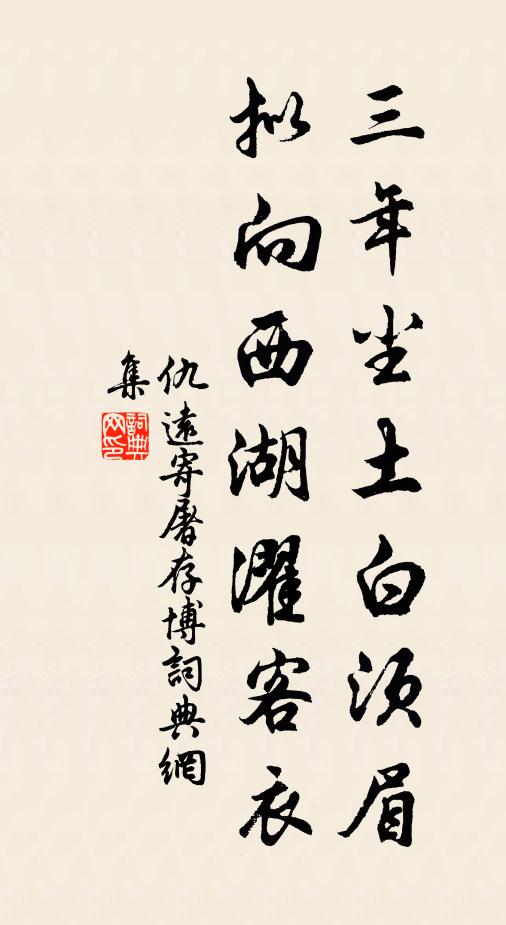 三年尘土白须眉
拟向西湖濯客衣
仇遠寄屠存博詞典網
集
詞典
网印